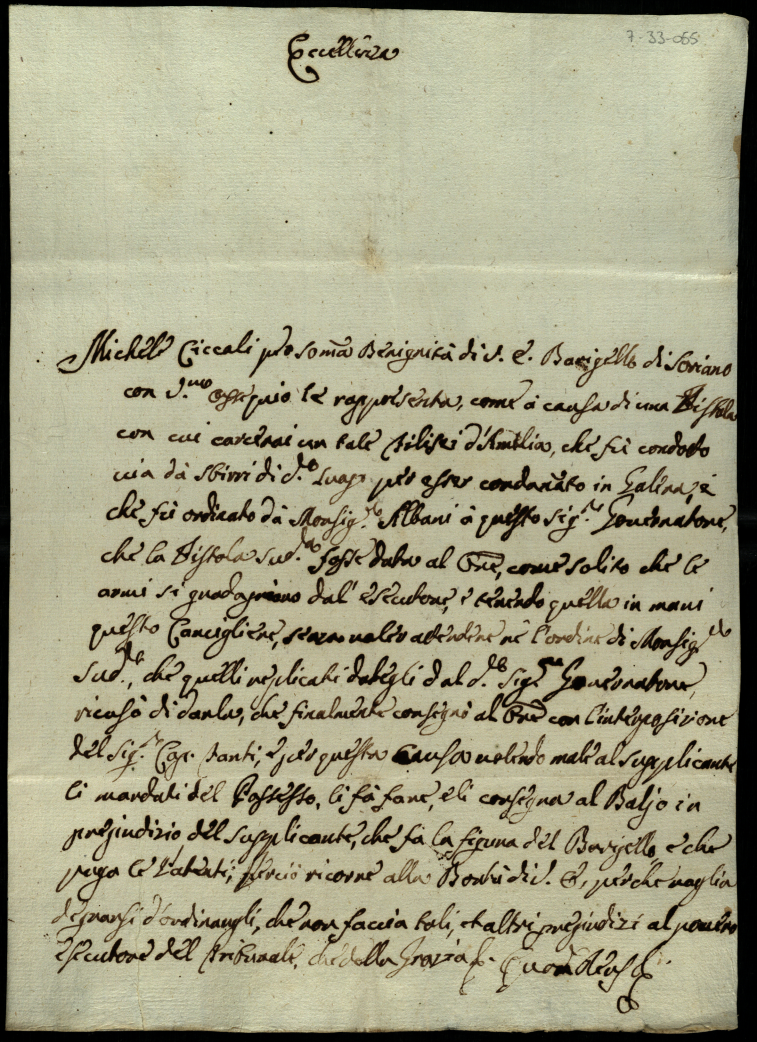 7-33-065
Eccellenza
Michele Ciccali per somã Benignità di V. E. Barigello di Soriano
con d.mo ossequio le rappresenta, come à causa di una Pistola
con cui carcerai un tale d'Amelia, che fù condotto
via dà sbirri di d.o Luogo per esser condannato in Galera, è
che fù ordinato dà Monsig.re Albani à questo Sig.re Governatore,
che la Pistola sud.a fosse data al Ore, come solito che le
armi si guadagniano dal' esecutore, è tenendo quella in mani
questo Cancigliere, senza voler attendere ne l'ordine di Monsig.re
sud.o, che quelli replicati dategli dal d.o Sig.re Governatore,
ricusò di darla, che finalmente consegnò al Ore con l'interposizione
del Sig.r Cap. Santi, è per questa causa volendo male al supplicante
li mandati del Possesso, li fà fare, e li consegna al Baljo in
pregiudizio del supplicante, che fà la figura del Barigello e che
paga le Patenti; perciò ricorre alla Bontà di V. E., perche voglia
degnarsi d'ordinargli, che non faccia tali, et altri pregiudizi al povero
esecutore del Tribunale, che della Grazia &. Quam Deus &.